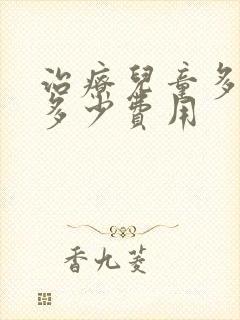 治療兒童多
多少費用
香九菱